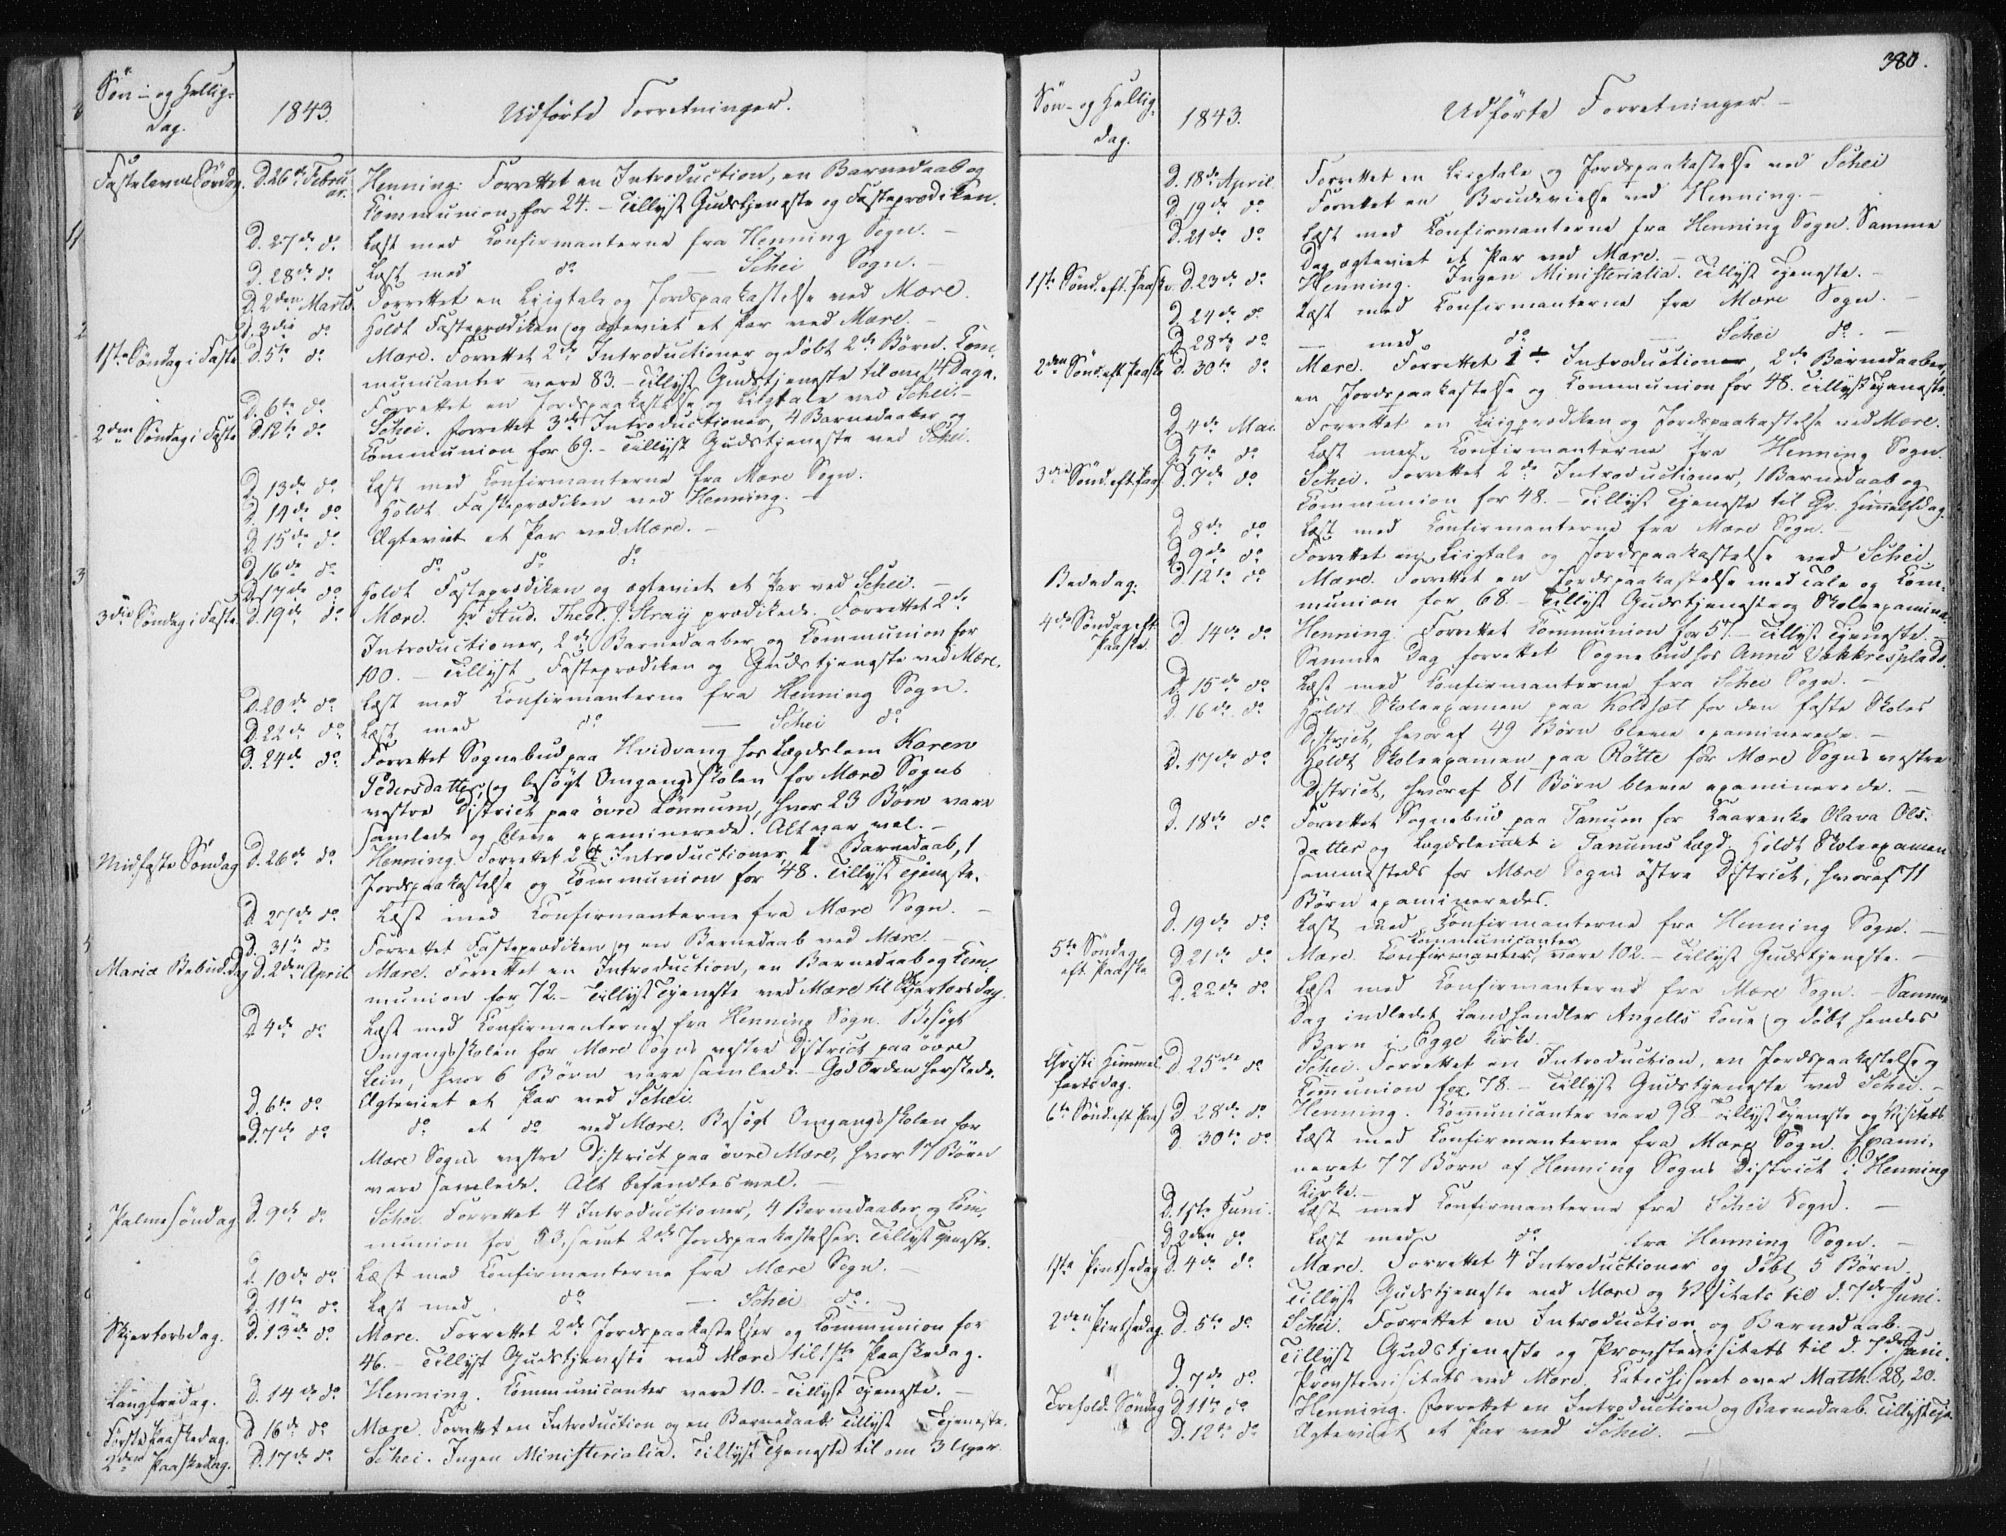 Søn- og Hellig-
dag.
1843.
Udførte Forretninger.
Fastelavns Søndag. D. 26de Febru- Henning. Forrettet en Introduction, en Barnedaab og
ar. Communion for 24. – Tillyst Gudstjeneste og Fasteprædiken.
D. 27de do Læst med Confirmanterne fra Henning Sogn. –
D. 28de do Læst med do – Schei Sogn. –
D. 2den Marts. Forrettet en Liigtale og Jordspaakastelse ved Mære.
D. 3die do Holdt Fasteprædiken og ægteviet et Par ved Mære. –
1ste Søndag i Faste D. 5te do Mære. Forrettet 2de Introductioner og døbt 2de Børn. Com-
municanter vare 83. – Tillyst Gudstjeneste til om 14 Dage.
D. 6te do Forrettet en Jordspaakastelse og Liigtale ved Schei. –
2den Søndag i Faste D. 12te do Schei. Forrettet 3de Introductioner, 4 Barnedaaber og
Communion for 69. – Tillyst Gudstjeneste ved Schei.
D. 13de do Læst med Confirmanterne fra Mære Sogn.
D. 14de do Holdt Fasteprædiken ved Henning. –
D. 15de do Ægteviet et Par ved Mære. –
D. 16de do do do do
D. 17de do Holdt Fasteprædiken og ægteviet et Par ved Schei. –
3die Søndag i Faste D. 19de do Mære. Hr Stud. Theol. J. Krag prædikede. Forrettet 2de
Introductioner, 2de Barnedaaber og Communion for
100. – Tillyst Fasteprædiken og Gudstjeneste ved Mære.
D. 20de do Læst med Confirmanterne fra Henning Sogn.
D. 22de do Læst med do – Schei do
D. 24de do Forrettet Sognebud paa Hvidvang hos Lægdslem Karen
Pedersdatter, og besøgt Omgangsskolen for Mære Sogns
vestre District paa øvre Lønnum, hvor 23 Børn vare
samlede og bleve examinerede. Alt var vel. –
Midfaste Søndag D. 26de do Henning. Forrettet 2de Introductioner, 1 Barnedaab, 1
Jordspaakastelse og Communion for 48. Tillyst Tjeneste.
D. 27de do Læst med Confirmanterne fra Mære Sogn. –
D. 31te do Forrettet Fasteprædiken og en Barnedaab ved Mære. –
Mariæ Bebud. Dag D. 2den April Mære. Forrettet en Introduction, en Barnedaab og Com-
munion for 72. – Tillyst Tjeneste ved Mære til Skjertorsdag.
D. 4de do Læst med Confirmanterne fra Henning Sogn. Besøgt
Omgangsskolen for Mære Sogns vestre District paa øvre
Lein, hvor 6 Børn vare samlede. – God Orden herskede.
D. 6te do Ægteviet et Par ved Schei.
D. 7de do do et do ved Mære. Besøgt Omgangsskolen for
Mære Sogns vestre District paa øvre Mære, hvor 17 Børn
vare samlede. Alt befandtes vel. –
Palmesøndag D. 9de do Schei. Forrettet 4 Introductioner, 4 Barnedaaber og Com-
munion for 53, samt 2de Jordspaakastelser. Tillyst Tjeneste.
D. 10de do Læst med Confirmanterne fra Mære Sogn. –
D. 11te do Læst med do – Schei do. –
Skjertorsdag. D. 13de do Mære. Forrettet 2de Jordspaakastelser og Communion for
46. – Tillyst Gudstjeneste ved Mære til 1ste Paaskedag.
Langfredag. D. 14de do Henning. Communicanter vare 10. – Tillyst Tjeneste. –
Første Paaskedag. D. 16de do Mære. Forrettet en Introduction og en Barnedaab. Tillyst Tjeneste.
2den Paaskedag. D. 17de do Schei. Ingen Ministerialia. Tillyst Tjeneste til om 3 Uger.
380.
Søn- og Hellig-
dag.
1843.
Udførte Forretninger –
D. 18de April Forrettet en Liigtale og Jordspaakastelse ved Schei
D. 19de do Forrettet en Brudevielse ved Henning. –
D. 21de do Læst med Confirmanterne fra Henning Sogn. Samme
Dag ægteviet et Par ved Mære. –
1ste Sønd. eft. Paaske. D. 23de do Henning. Ingen Ministerialia. Tillyst Tjeneste. –
D. 24de do Læst med Confirmanterne fra Mære Sogn. –
D. 28de do – med do – Schei do. –
2den Sønd. eft. Paaske D. 30te do Mære. Forrettet 1 Introduction, 2de Barnedaaber,
en Jordspaakastelse og Communion for 48. Tillyst Tjeneste.
D. 4de Mai. Forrettet en Liigprædiken og Jordspaakastelse ved Mære.
D. 5te do Læst med Confirmanterne fra Henning Sogn.
3die Sønd. eft. Paas. D. 7de do Schei. Forrettet 2de Introductioner, 1 Barnedaab og
Communion for 48. – Tillyst Tjeneste til Chr. Himmelfdag.
D. 8de do Læst med Confirmanterne fra Mære Sogn.
D. 9de do Forrettet en Liigtale og Jordspaakastelse ved Schei
Bededag. D. 12te do Mære. Forrettet en Jordspaakastelse med Tale og Com-
munion for 68. – Tillyst Gudstjeneste og Skoleexamina.
4de Søndag eft. Paaske. D. 14de do Henning. Forrettet Communion for 57. – Tillyst Tjeneste. –
Samme Dag forrettet Sognebud hos Anne Vækkresplads.
D. 15de do Læst med Confirmanterne fra Schei Sogn. –
D. 16de do Holdt Skoleexamen paa Koldset for den faste Skoles
District, hvoraf 49 Børn bleve examinerede. –
D. 17de do Holdt Skoleexamen paa Røtte for Mære Sogns vestre
District, hvoraf 81 Børn bleve examinerede. –
D. 18de do Forrettet Sognebud paa Tanum for Kaarenke Olava Ols-
datter og Lægdslemmet i Tanums Lægd. Holdt Skoleexamen
sammesteds for Mære Sogns østre District, hvoraf 71
Børn examineredes.
D. 19de do Læst med Confirmanterne fra Henning Sogn. –
5te Søndag eft. Paaske D. 21de do Mære. Communicanter vare 102. – Tillyst Gudstjeneste. –
D. 22de do Læst med Confirmanterne fra Mære Sogn. – Samme
Dag indledet Landhandler Angells Kone og døbt hendes
Barn i Egge Kirke.
Christi Himmel- fartsdag. D. 25de do Schei. Forrettet en Introduction, en Jordspaakastelse og
Communion for 78. – Tillyst Gudstjeneste ved Schei. –
6te Sønd. eft. Paas. D. 28de do Henning. Communicanter vare 98. Tillyst Tjeneste og Visitats
D. 30te do Læst med Confirmanterne fra Mære Sogn. Exami-
neret 77 Børn af Henning Sogns District i Henning
Kirke. –
D. 1ste Juni. Læst med Confirmanterne fra Schei Sogn. –
D. 2den do Læst med do fra Henning Sogn. –
1ste Pintsedag D. 4de do Mære. Forrettet 4 Introductioner og døbt 5 Børn.
Tillyst Gudstjeneste ved Mære og Visitats til d. 7de Juni.
2den Pintsedag. D. 5te do Schei. Forrettet en Introduction og Barnedaab. –
Tillyst Gudstjeneste og Provstevisitats til d. 7de Juni.
D. 7de do Provstevisitats ved Mære. Catechiseret over Matth. 28, 20.
Trefold. Søndag D. 11te do Henning. Forrettet en Introduction og Barnedaab. Tillyst Tje.
D. 12te do Ægteviet et Par ved Schei. –